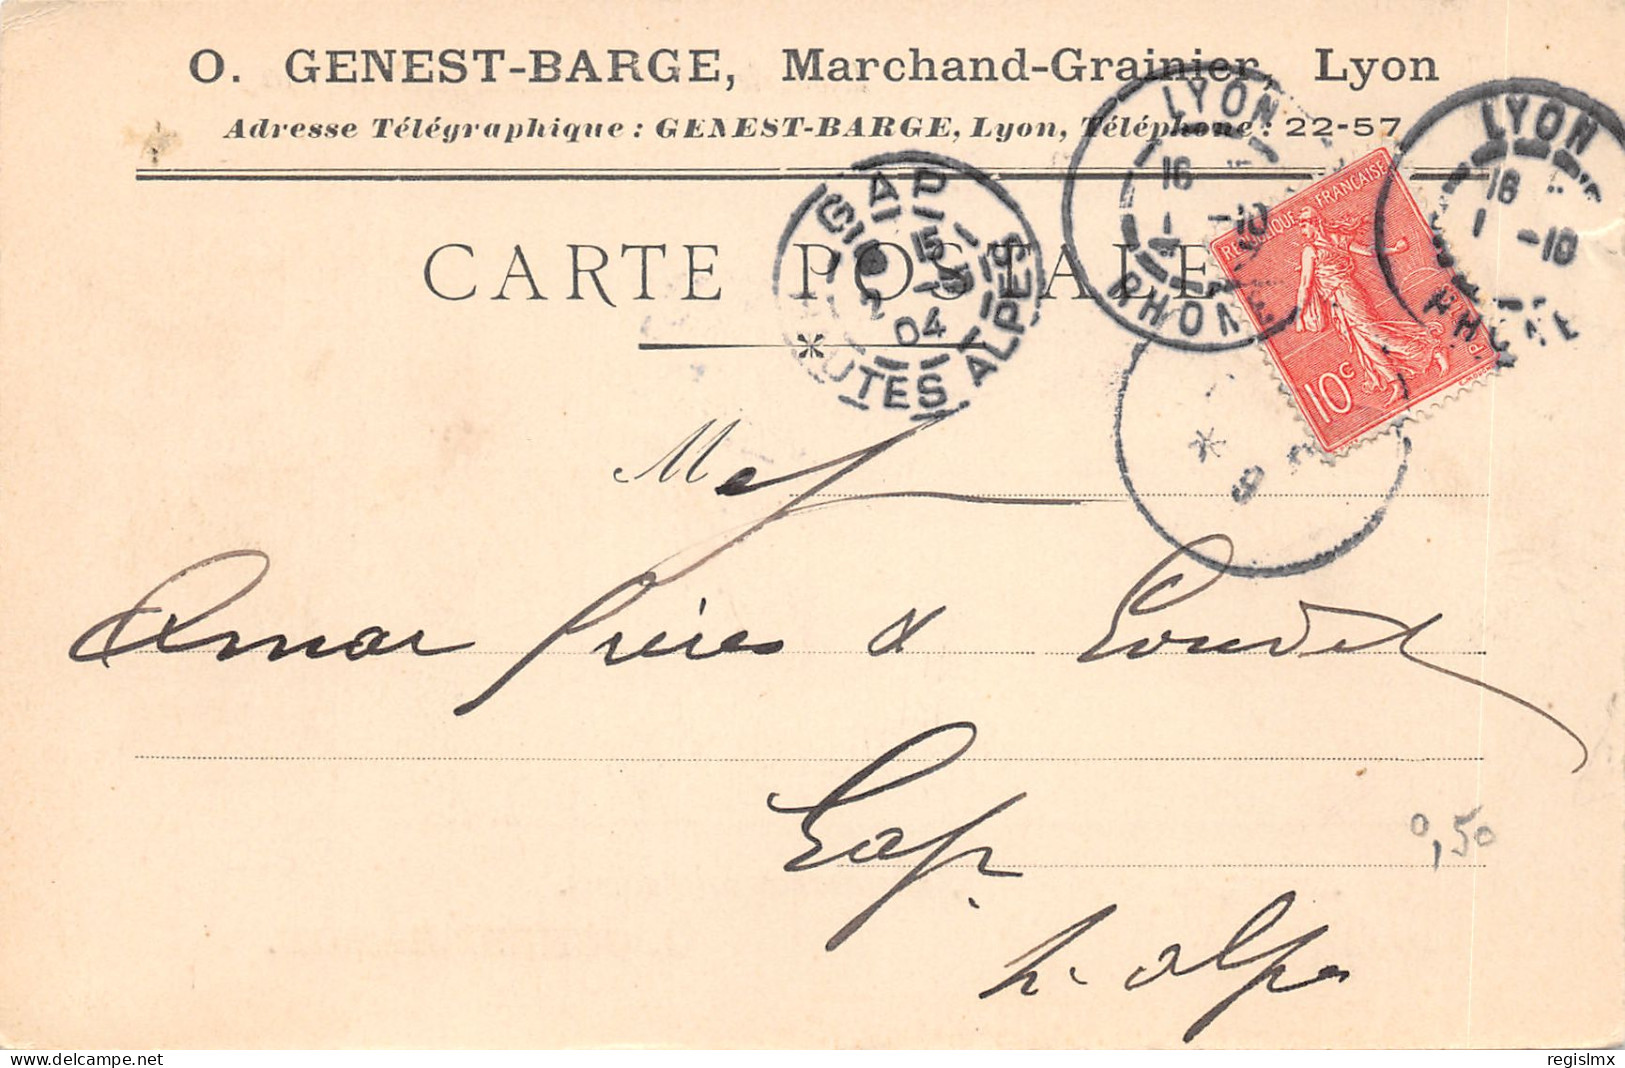 O. GENEST-BARGE, Marchand-Grainier, Lyon
Adresse Télégraphique : GENEST-BARGE, Lyon, Téléphone : 22-57
LYON
16
1 -10
RHONE
LYON
16
1 -10
RHONE
GAP
5
2 -10
04
HAUTES ALPES
REPUBLIQUE FRANÇAISE
10c
CARTE POSTALE
Mes
Amar frères &
Gap
h. alpes
0,50
regislmx